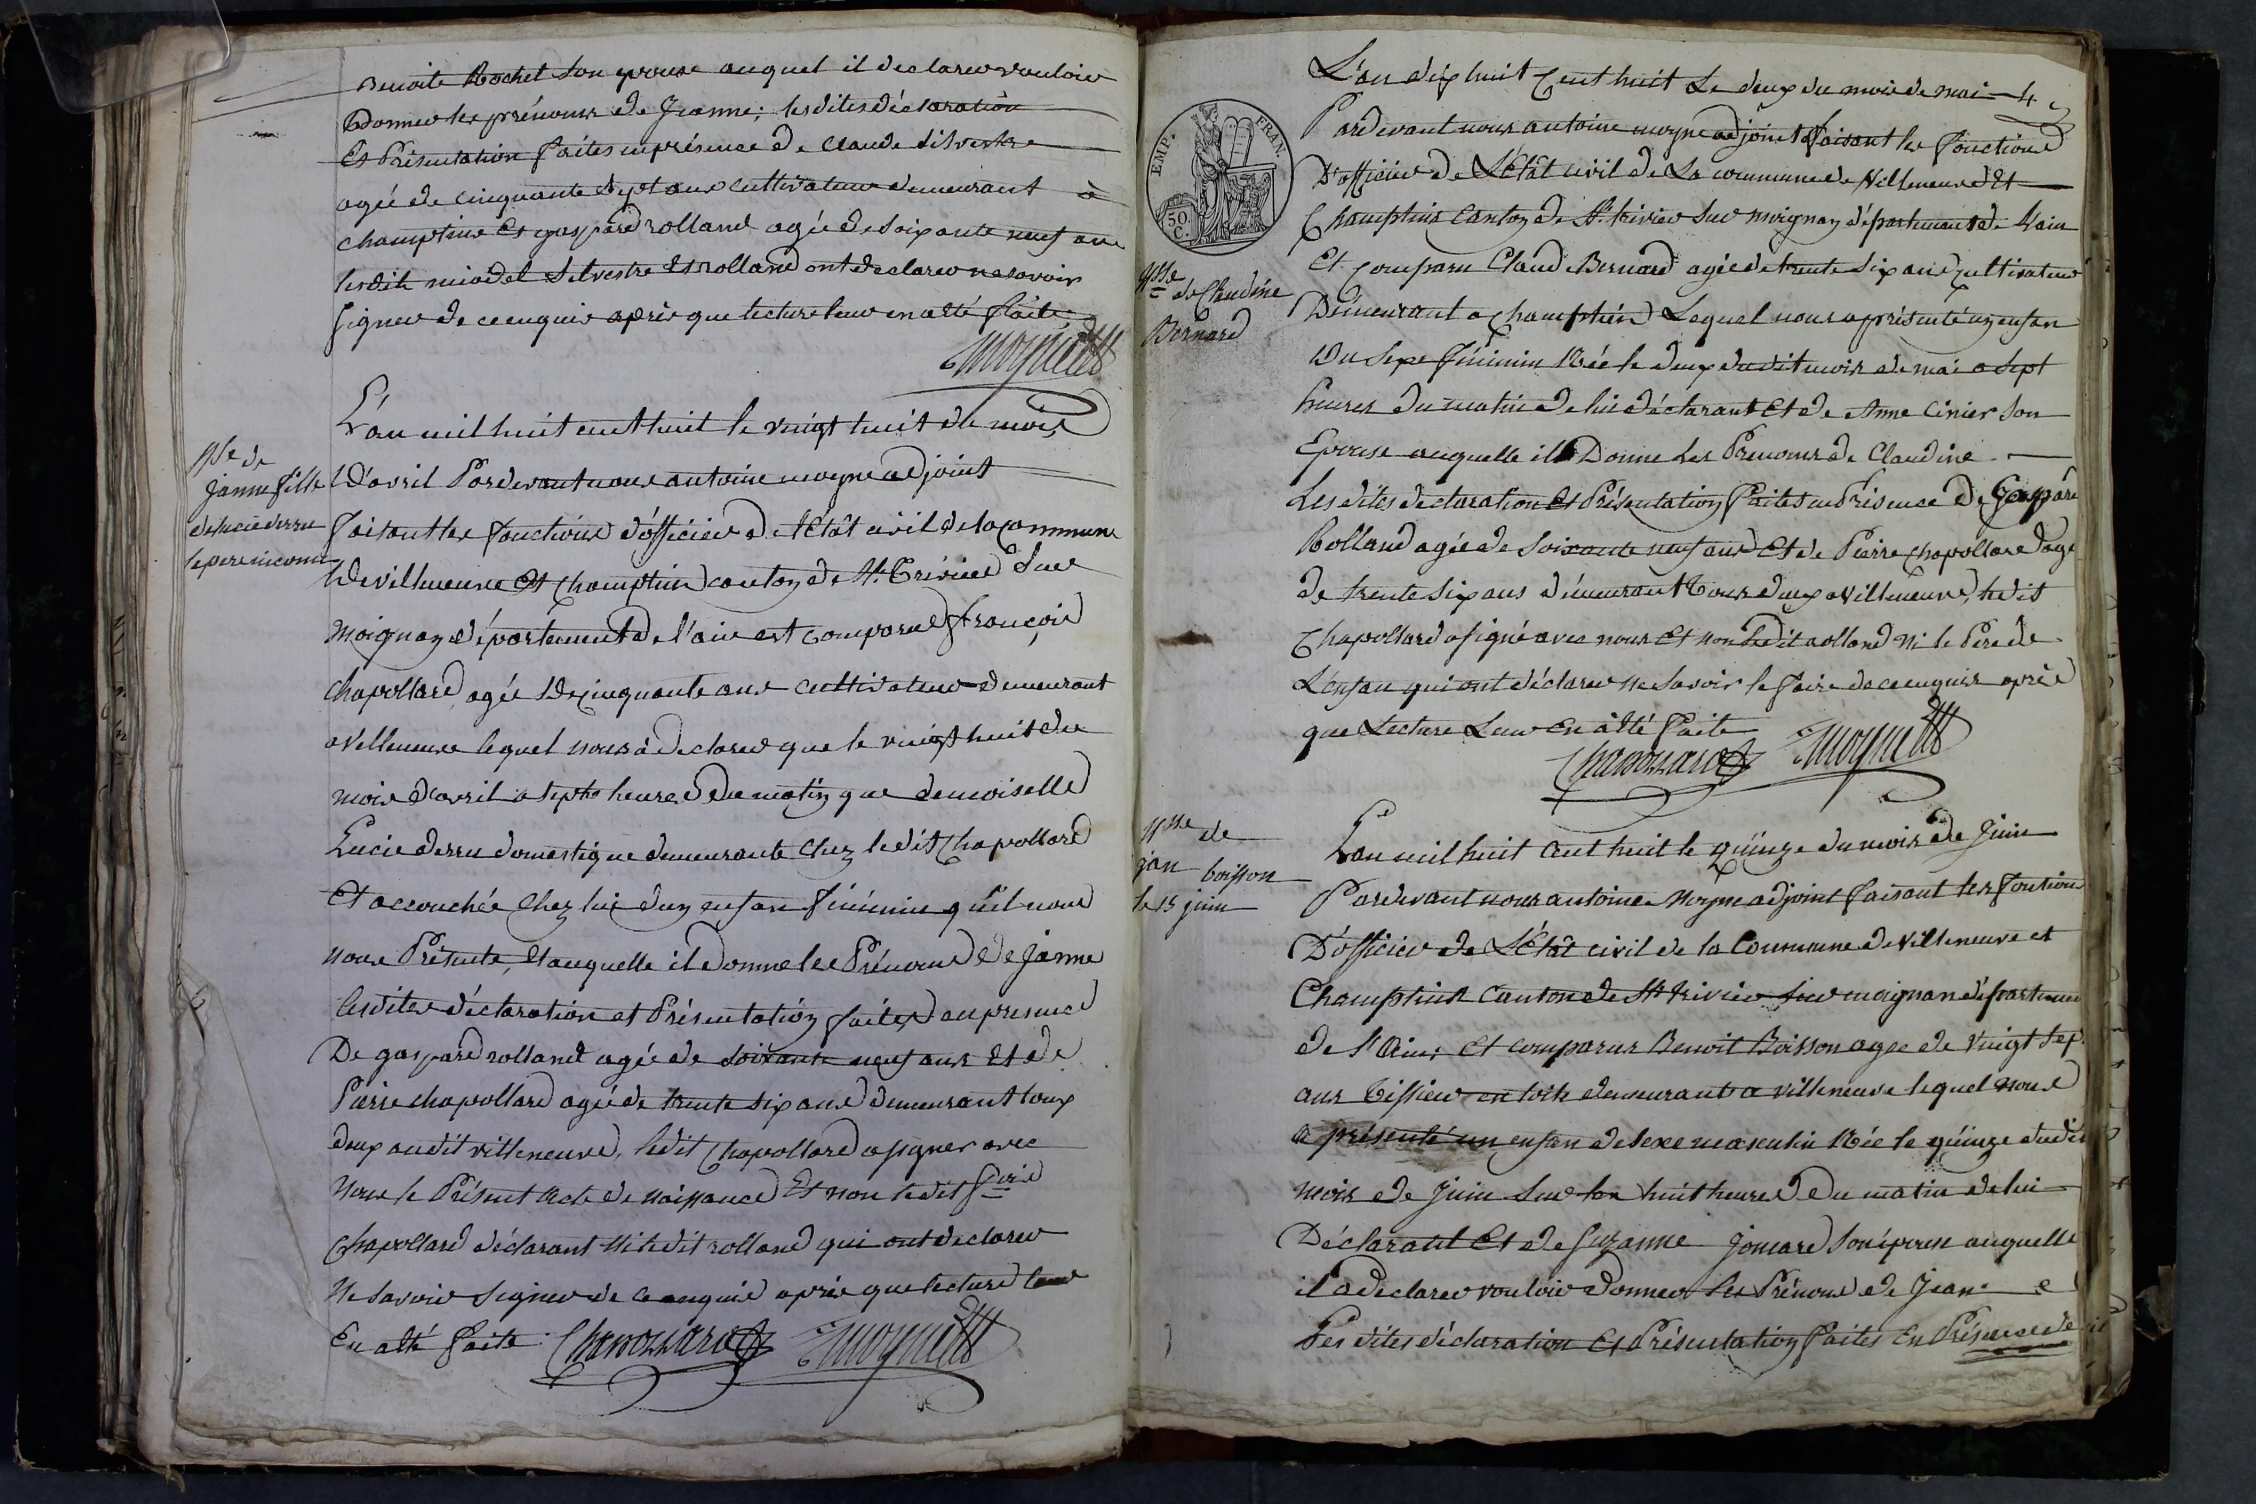 Benoite Rochet son epouse auquel il declarer vouloir
Donner les prénoms de Jeanne; les dites déclaration
Et Présentation faites en présence de Claude silvestre
agée de cinquante sept ans cultivateur demeurant à
champtein et gaspard rolland agée de soixante neuf ans
lesdits Silvestre Et rolland ont declarer ne savoir
signer de ce enquis après que lecture leur en a été faite
Moyne adt
L'an mil huit cent huit le vingt huit du mois
D'avril Pardevant nous antoine moyne adjoint
faisant les fonctions d'officier de l'Etât civil de la commune
De villeneuve Et Champtein canton de St. Trivier Sur
Moignan département de l'ain est comparu françois
chapollard agée De cinquante ans cultivateur demeurant
a Villeneuve lequel nous à declarer que le vingt huit du
mois d'avril a sept heures du matin que demoiselle
Lucie derru domestique demeurante Chez le dit Chapollard
Et accouchée Chez lui d'un enfan féminin qu'il nous
nous Présente, Et auquelle il Donne les Prénoms de Janne
Lesdites déclaration et Présentation faites en presence
De gaspard rolland agée de soixante neuf ans Et de
Pierre chapollard agée de trente six ans Demeurant tous
deux audit villeneuve, ledit Chapollard a signer avec
Nous le Présent Acte de naissance Et non le dit fçois
Chapollard déclarant Ni ledit rolland qui ont declarer
Ne savoir signer de ce enquis après que lecture leur
En a été faite Chapollard Moyne adt
Nsse de
Janne fille
de lucie derru
le pere inconnu
L'an dix huit Cent huit Le deux du mois de mai 4
Pardevant nous antoine moyne adjoint faisant les fonctions
D'officier de L'Etât civil de La commune de Villeneuve Et
Champtein Canton de St. trivier sur moignan département de L'ain
Et Comparu Claude Bernard agée de trente six ans Cultivateur
Démeurant a Champtein Lequel nous a présenté un enfan
Du Sexe féminin Née le deux dudit mois de mai a sept
heures du matin de lui déclarant Et de Anne Cinier Son
Epouse auquelle il a Donne Les Prenoms de Claudine
Les dites declaration Et Présentation faites en Présence De Gaspard
Rolland agée de soixante neuf ans Et de Pierre Chapollard age
de trente six ans démeurant tous deux a Villeneuve, ledit
Chapollard a signé avec nous Et non ledit rolland Ni le Pere de
L'enfan qui ont déclarer Ne savoir le faire de ce enquis après
que Lecture Leur En à été faite
Chapollard Moyne adt
EMP. FRAN.
50.
C.
Nsse
de Claudine
Bernard
L'an mil huit cent huit le quinze du mois de Juin
Pardevant nous antoine Moyne adjoint faisant les fontions
D'officier de L'Etât civil de la Commune de Villeneuve et
Champtein Canton de St. trivier sur moignan départemen
de l'Ain; Et comparus Benoit Boisson agée de Vingt sep
ans tissier en toile demeurant a villeneuve lequel nous
a présenté un enfan de sexe masculin Née le quinze dudit
mois de Juin sur les huit heures du matin de lui
Déclarant Et de Suzanne Jomard son épouse auquelle
il a declarer vouloir donner les Prénoms de Jean
Les dites déclaration Et Présentation faites En Présence de
Nsse de
jan boisson
le 15 juin